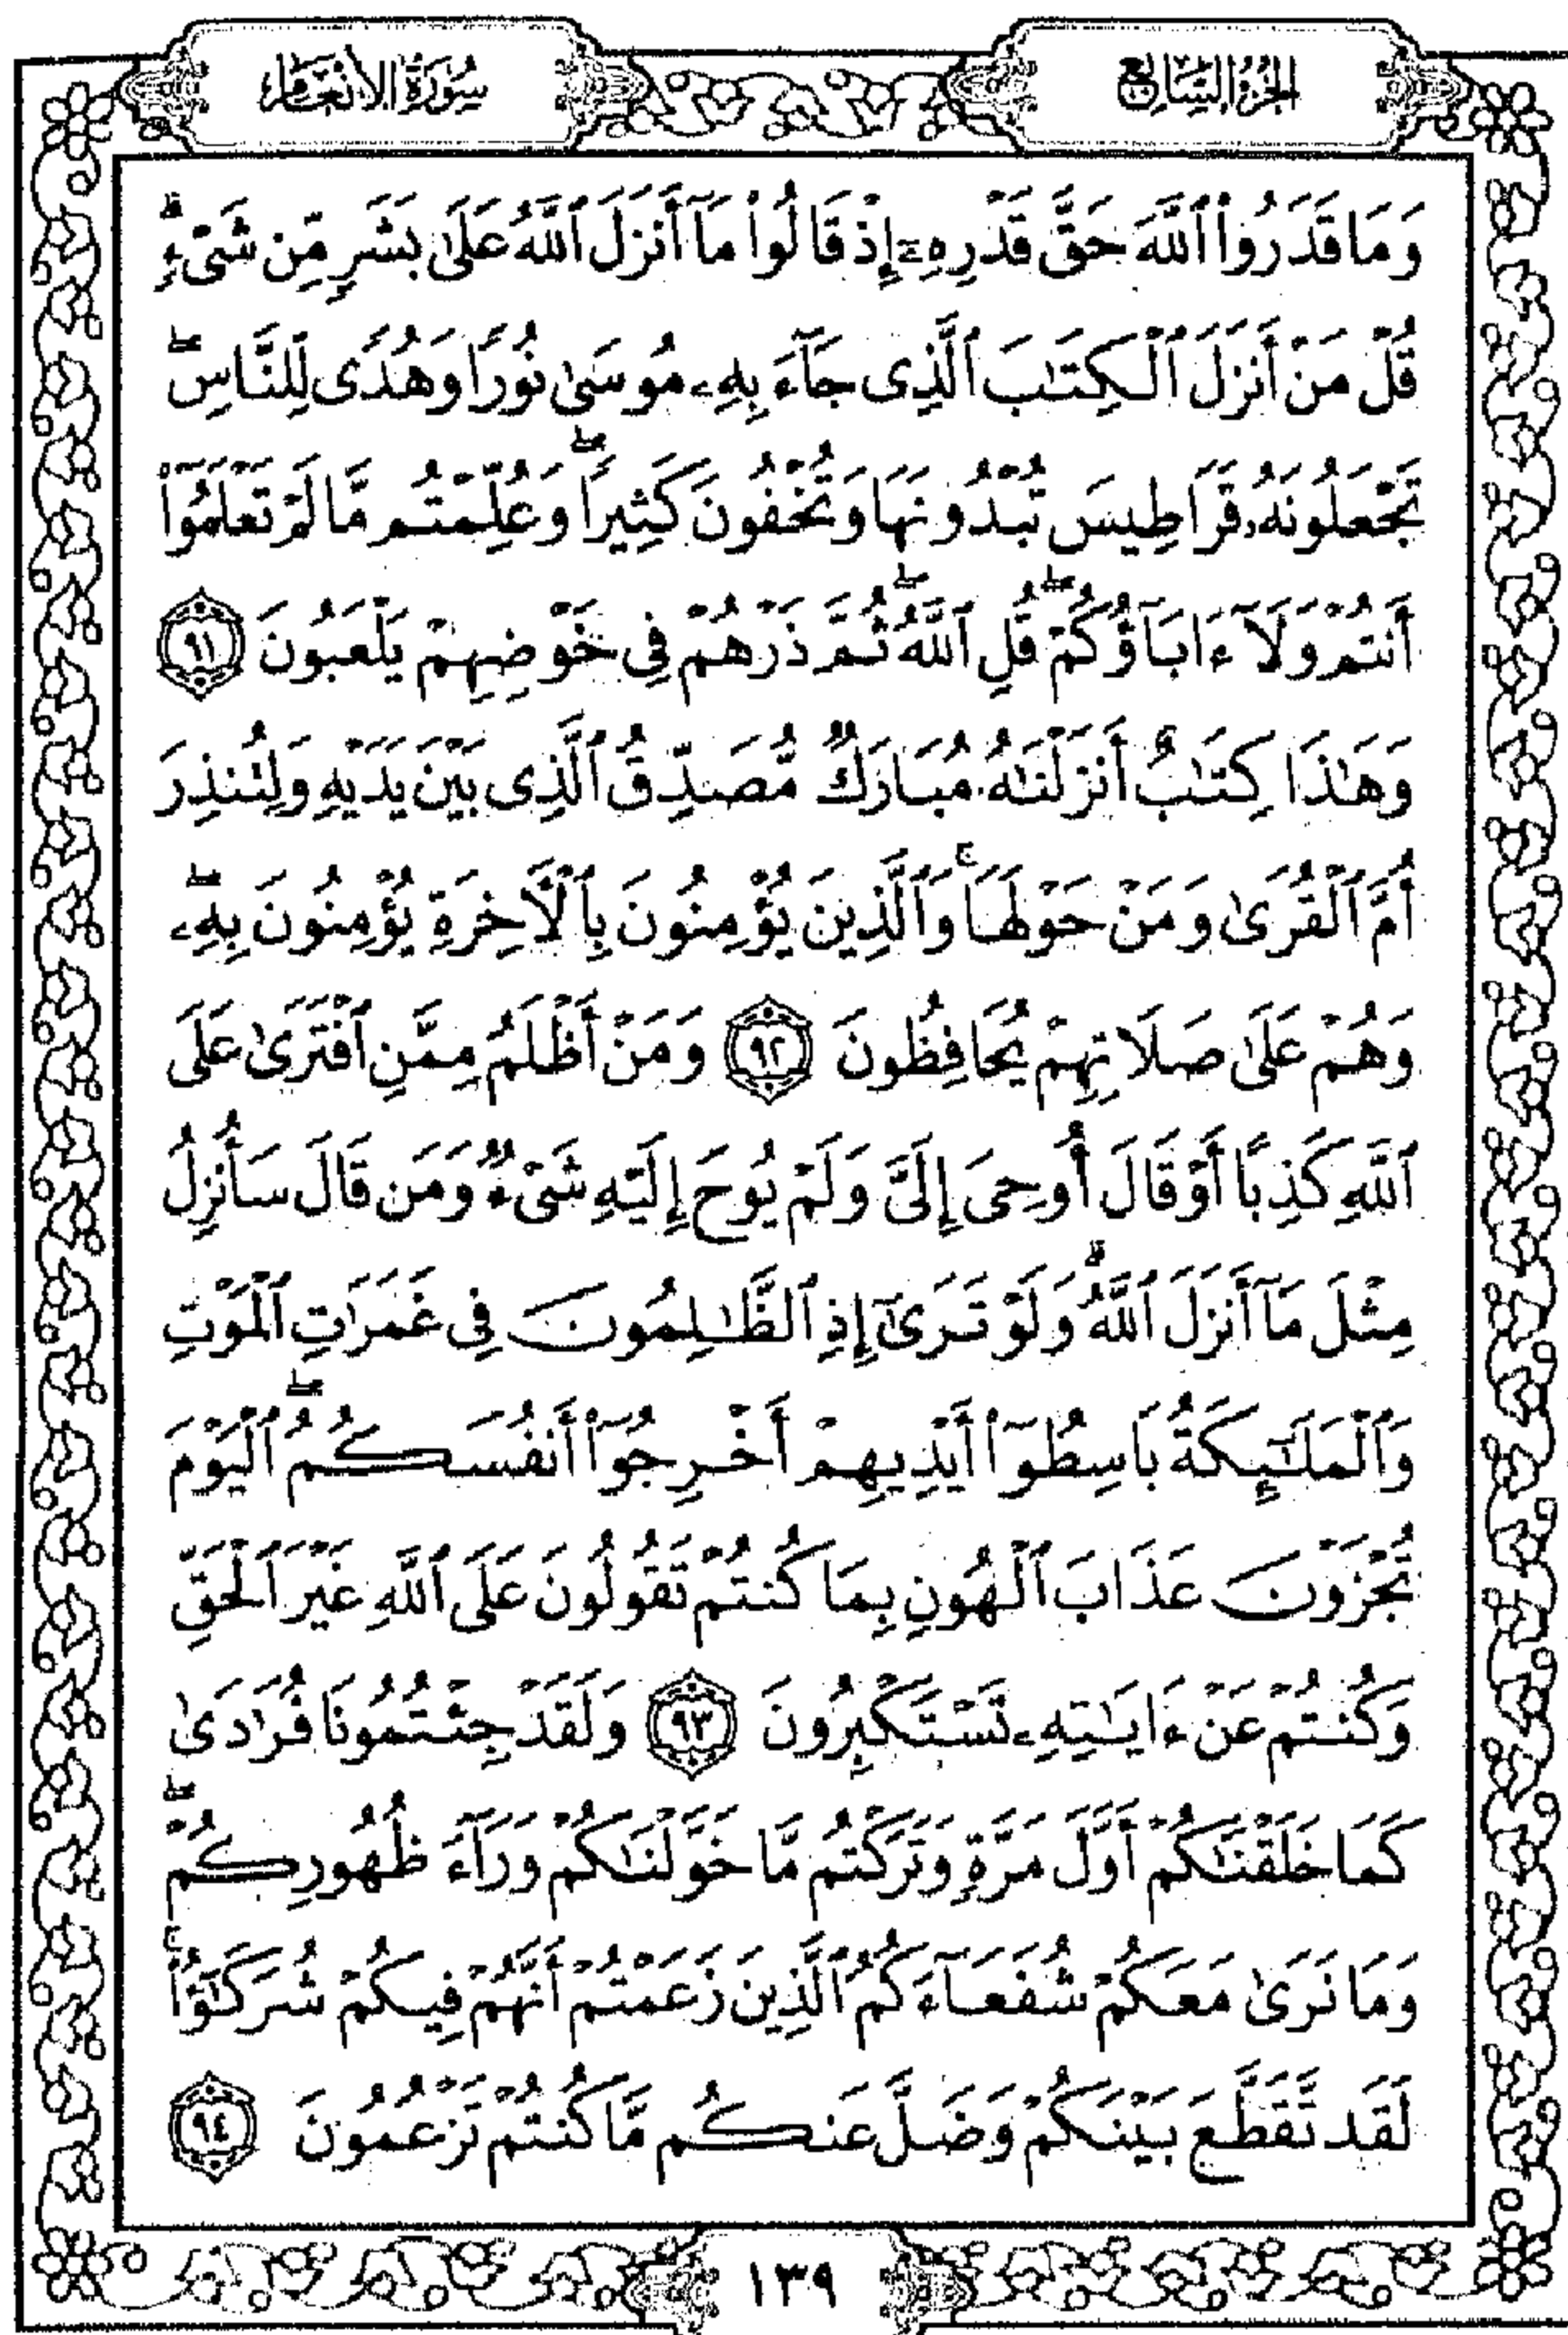 الجزء السابع
سورة الأنعام
وَمَا قَدَرُوا۟ ٱللَّهَ حَقَّ قَدْرِهِۦٓ إِذْ قَالُوا۟ مَآ أَنزَلَ ٱللَّهُ عَلَىٰ بَشَرٍ مِّن شَىْءٍۗ
قُلْ مَنْ أَنزَلَ ٱلْكِتَـٰبَ ٱلَّذِى جَآءَ بِهِۦ مُوسَىٰ نُورًا وَهُدًى لِّلنَّاسِۖ
تَجْعَلُونَهُۥ قَرَاطِيسَ تُبْدُونَهَا وَتُخْفُونَ كَثِيرًاۖ وَعُلِّمْتُم مَّا لَمْ تَعْلَمُوٓا۟
أَنتُمْ وَلَآ ءَابَآؤُكُمْۖ قُلِ ٱللَّهُۖ ثُمَّ ذَرْهُمْ فِى خَوْضِهِمْ يَلْعَبُونَ ٩١
وَهَـٰذَا كِتَـٰبٌ أَنزَلْنَـٰهُ مُبَارَكٌ مُّصَدِّقُ ٱلَّذِى بَيْنَ يَدَيْهِ وَلِتُنذِرَ
أُمَّ ٱلْقُرَىٰ وَمَنْ حَوْلَهَاۚ وَٱلَّذِينَ يُؤْمِنُونَ بِٱلْـَٔاخِرَةِ يُؤْمِنُونَ بِهِۦۖ
وَهُمْ عَلَىٰ صَلَاتِهِمْ يُحَافِظُونَ ٩٢ وَمَنْ أَظْلَمُ مِمَّنِ ٱفْتَرَىٰ عَلَى
ٱللَّهِ كَذِبًا أَوْ قَالَ أُوحِىَ إِلَىَّ وَلَمْ يُوحَ إِلَيْهِ شَىْءٌ وَمَن قَالَ سَأُنزِلُ
مِثْلَ مَآ أَنزَلَ ٱللَّهُۗ وَلَوْ تَرَىٰٓ إِذِ ٱلظَّـٰلِمُونَ فِى غَمَرَٰتِ ٱلْمَوْتِ
وَٱلْمَلَـٰٓئِكَةُ بَاسِطُوٓا۟ أَيْدِيهِمْ أَخْرِجُوٓا۟ أَنفُسَكُمُۖ ٱلْيَوْمَ
تُجْزَوْنَ عَذَابَ ٱلْهُونِ بِمَا كُنتُمْ تَقُولُونَ عَلَى ٱللَّهِ غَيْرَ ٱلْحَقِّ
وَكُنتُمْ عَنْ ءَايَـٰتِهِۦ تَسْتَكْبِرُونَ ٩٣ وَلَقَدْ جِئْتُمُونَا فُرَٰدَىٰ
كَمَا خَلَقْنَـٰكُمْ أَوَّلَ مَرَّةٍ وَتَرَكْتُم مَّا خَوَّلْنَـٰكُمْ وَرَآءَ ظُهُورِكُمْۖ
وَمَا نَرَىٰ مَعَكُمْ شُفَعَآءَكُمُ ٱلَّذِينَ زَعَمْتُمْ أَنَّهُمْ فِيكُمْ شُرَكَـٰٓؤُا۟ۚ
لَقَد تَّقَطَّعَ بَيْنَكُمْ وَضَلَّ عَنكُم مَّا كُنتُمْ تَزْعُمُونَ ٩٤
١٣٩